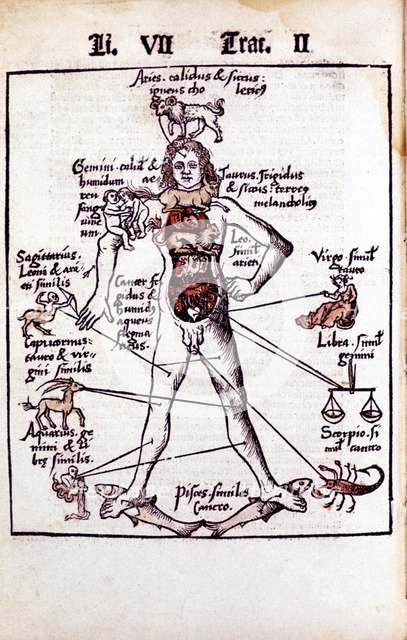 Li. VII Trac. II
Aries. calidus & siccus:
igneus cho lericꝰ
Gemini. calid' &
humidum ae
reu
sang
uine
um.
Taurus. frigidus
& siccus. terreꝰ
melancholicꝰ
Leo.
simil'
arieti
Sagittarius.
Leoni & ari
eti similis
Cancer fri
gidus &
humidꝰ
aqueus
flegma
ticus.
Virgo. simil'
tauro
Libra. simil'
gemini
Capricornus.
tauro & vir-
gini similis
Aquarius. ge
mini & li
bre similis.
Scorpio. si
mil' cancro
Pisces. similes
Cancro.